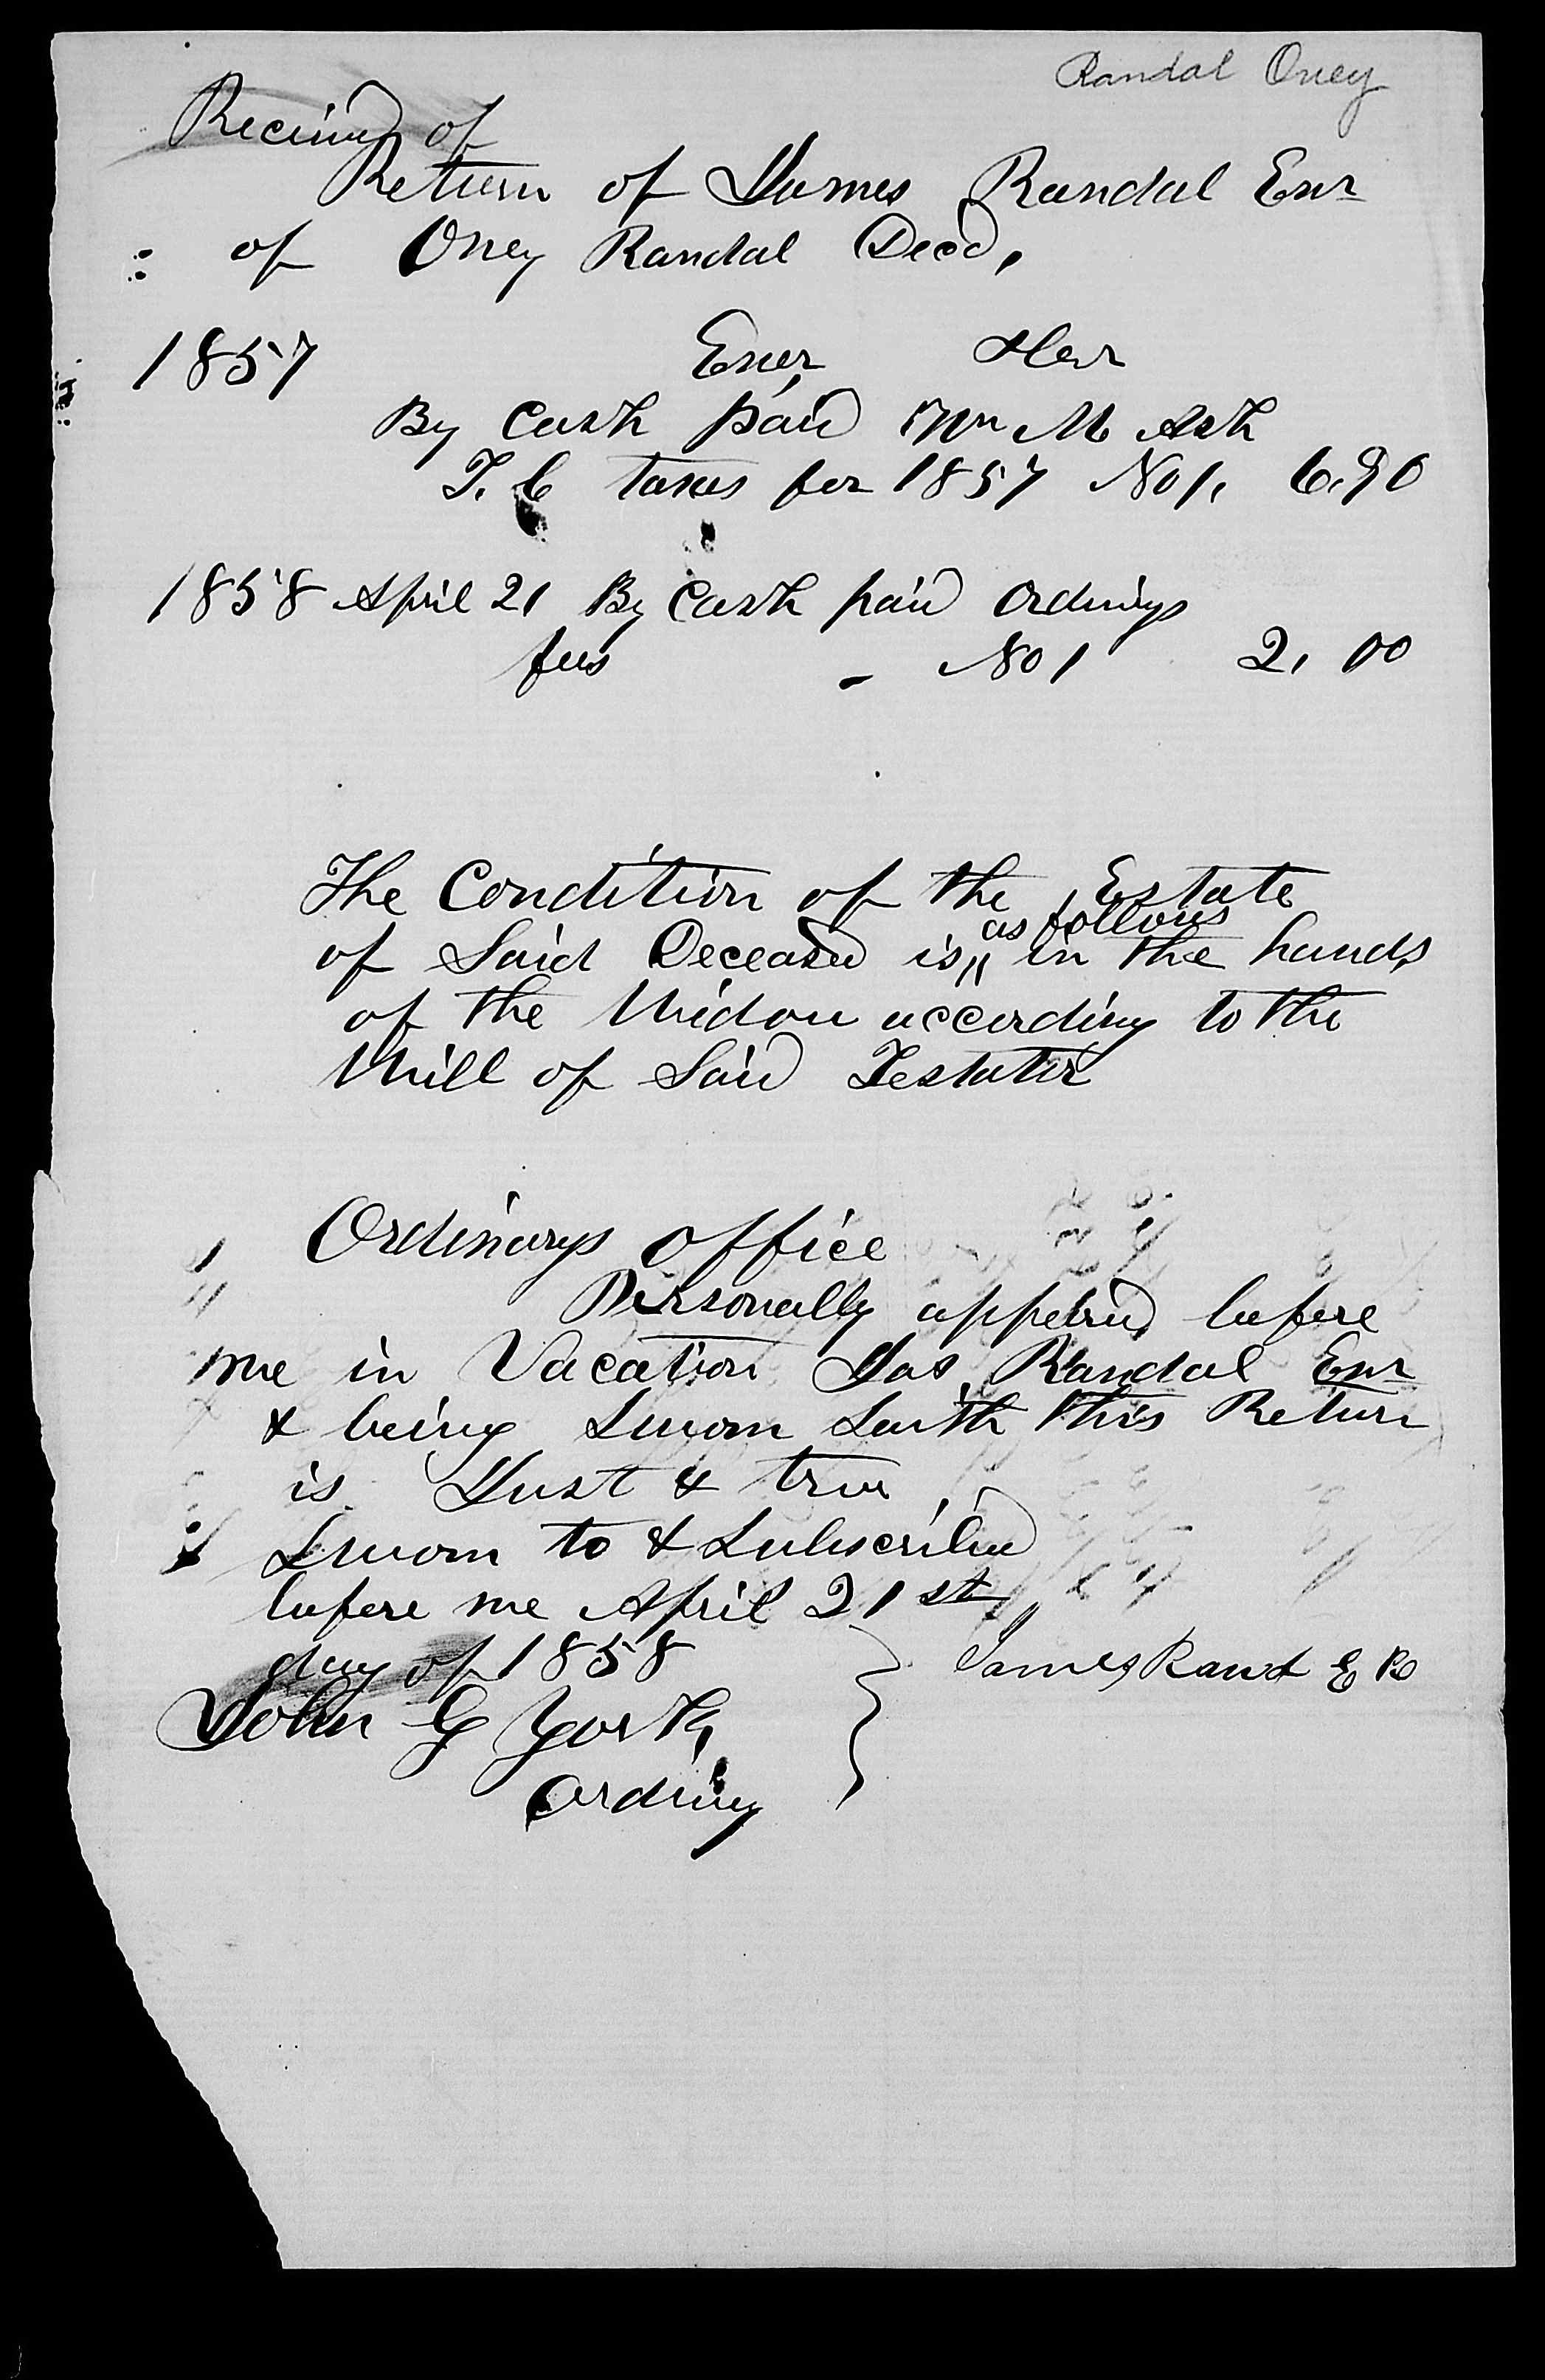 Randal Oney
Recived of
Return of James Randal Exr
of Oney Randal Decd,
1857 Exer
By Cash paid Wm M Ash
T. C taxes for 1857 No 1. 6.90
1858 April 21 By Cash paid Ordinys
fees - No 1 2, 00
The Condition of the Estate
as follows
of Said Deceased is in the hands
of the Widow according to the
Will of Said Testator
Ordinarys office
Personally appeard before
me in Vacation Jas Randal Exr
& being Sworn Saith this Return
is Just & true
Sworn to & Subscribed
before me April 21st
day of 1858
James Rand E R
John G York,
Ordiny